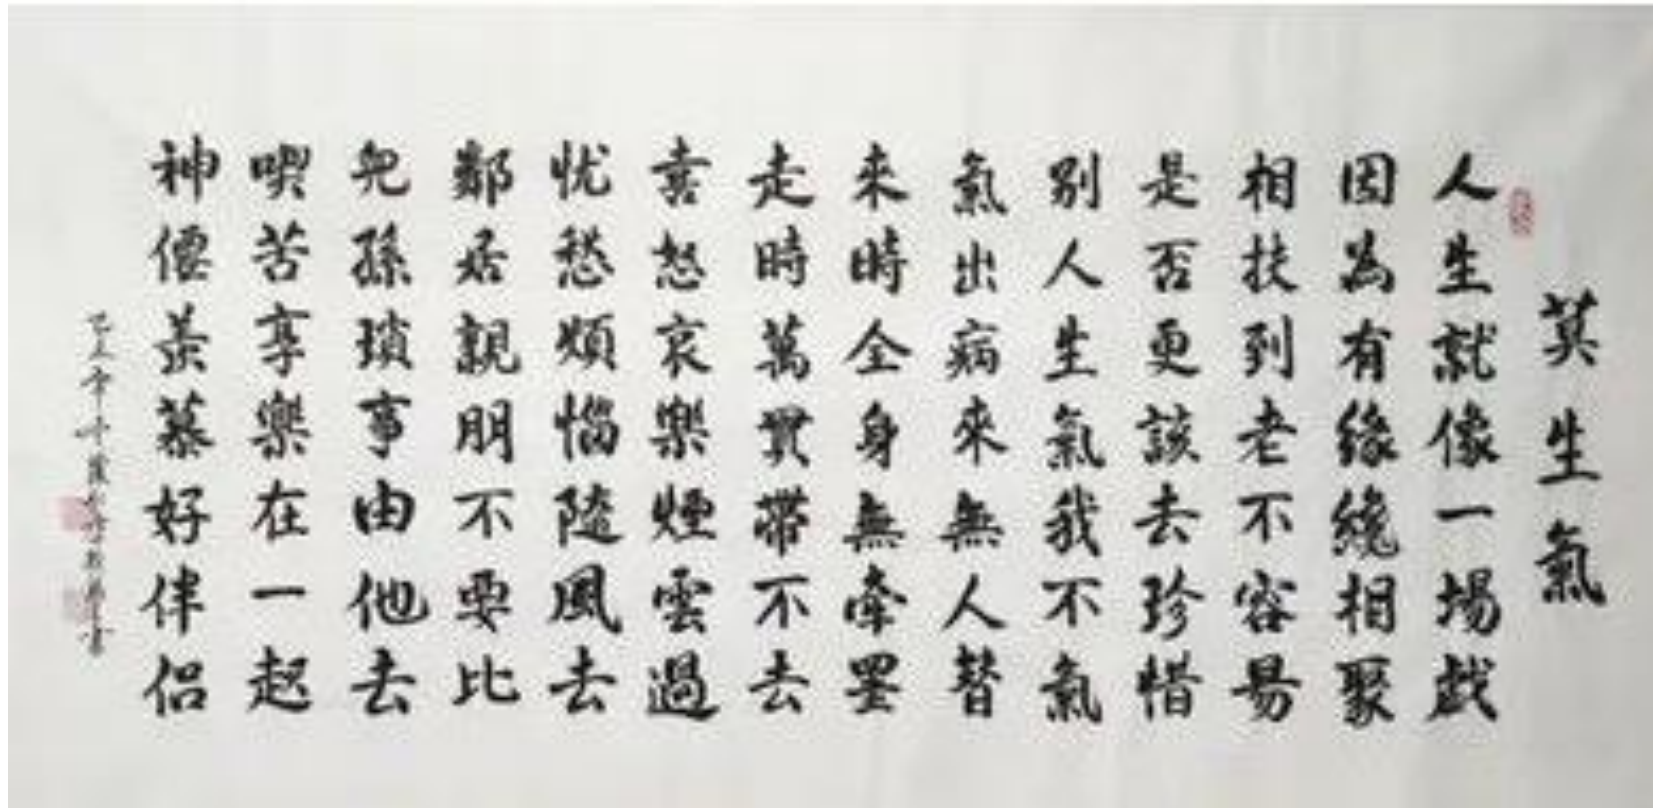 莫生氣
人生就像一場戲
因為有緣纔相聚
相扶到老不容易
是否更該去珍惜
別人生氣我不氣
氣出病來無人替
來時全身無牽罣
走時萬貫帶不去
喜怒哀樂煙雲過
忧愁煩惱隨風去
鄰居親朋不要比
兒孫瑣事由他去
喫苦享樂在一起
神僊羨慕好伴侶